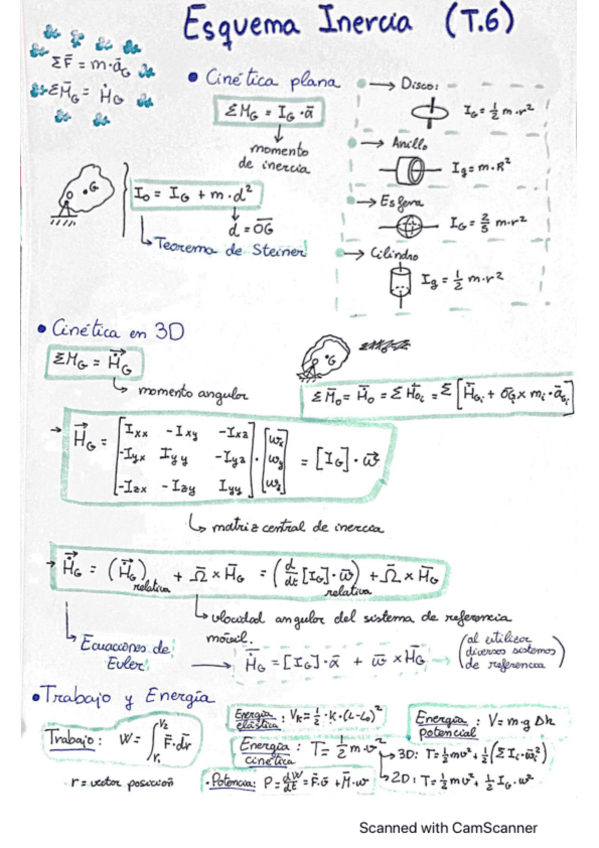 Esquema Inercia (T.6)
ΣF̄ = m·ā_G
ΣM̄_G = Ḣ_G
• Cinética plana
ΣM_G = I_G·ᾱ
↓
momento
de inercia
I_O = I_G + m·d²
↓
d = OG
↳ Teorema de Steiner
O •G
→ Disco:
I_G = 1/2 m·r²
→ Anillo
I_g = m·R²
→ Esfera
I_G = 2/5 m·r²
→ Cilindro
I_g = 1/2 m·r²
• Cinética en 3D
ΣM_G = Ḣ_G
↳ momento angular
•G
ΣM̄_O = Ḣ_O = ΣḢ_Oi = Σ[Ḣ_Gi + OG × m_i·ā_Gi]
→ H_G = [I_xx -I_xy -I_xz; -I_yx I_yy -I_yz; -I_zx -I_zy I_yy]·[ω_x; ω_y; ω_z] = [I_G]·ω̄
↳ matriz central de inercia
→ Ḣ_G = (Ḣ_G)relativa + Ω̄ × H̄_G = (d/dt [I_G]·ω̄)relativa + Ω̄ × H̄_G
↳ velocidad angular del sistema de referencia
móvil.
↳ Ecuaciones de
Euler
→ Ḣ_G = [I_G]·ᾱ + ω̄ × H̄_G
(al utilizar
diversos sistemas
de referencia)
• Trabajo y Energía
Trabajo: W = ∫ F̄·dr̄
r = vector posición
Energía
elástica : V_k = 1/2·K·(L-L₀)²
Energía
potencial : V = m·g Δh
Energía
cinética : T = 1/2 m·v²
→ 3D: T = 1/2 mv² + 1/2 (Σ I_i·ω̄_i²)
↳ 2D: T = 1/2 mv² + 1/2 I_G·ω²
• Potencia: P = dW/dt = F̄·v̄ + M̄·ω
Scanned with CamScanner